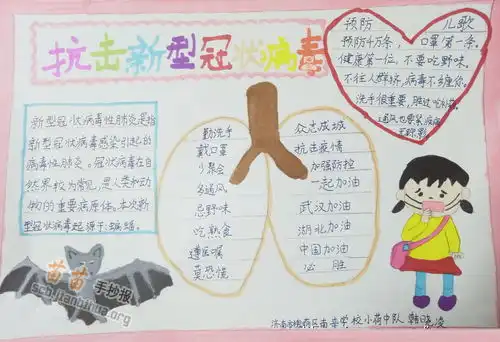 抗击新型冠状病毒
预防 儿歌
预防千万条，口罩第一条。
健康第一位，不要吃野味。
不往人群挤，病毒不缠你。
洗手很重要，
通风也要紧，
新型冠状病毒性肺炎是指
新型冠状病毒感染引起的
病毒性肺炎。冠状病毒在自
然界较为常见，是人类和动
物的重要病原体。本次新
型冠状病毒起源于：蝙蝠。
勤洗手
戴口罩
少聚会
多通风
忌野味
吃熟食
遵医嘱
莫恐慌
众志成城
抗击疫情
加强防控
一起加油
武汉加油
湖北加油
中国加油
必 胜
苗苗
手抄报
学校小荷中队 韩